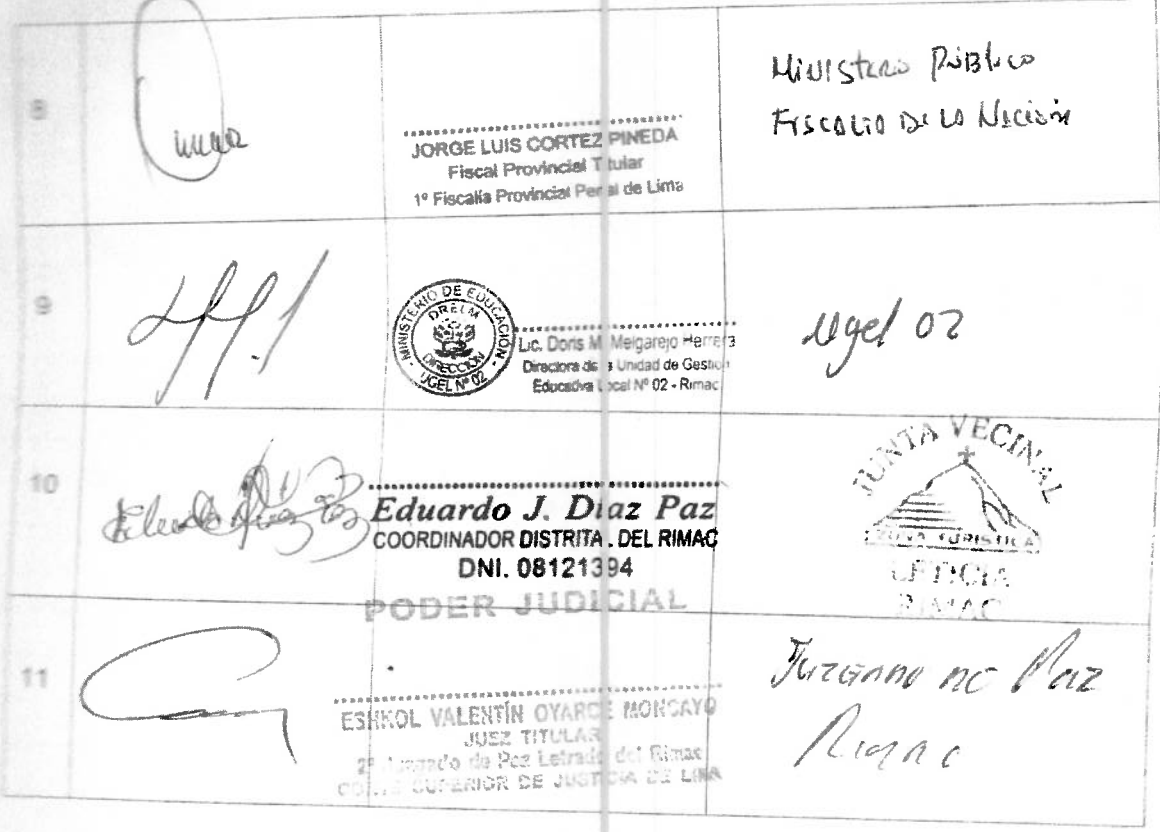 8
JORGE LUIS CORTEZ PINEDA
Fiscal Provincial Titular
1º Fiscalía Provincial Penal de Lima
Ministerio Público
Fiscalia de la Nación
9
MINISTERIO DE EDUCACIÓN
DRELM
DIRECCIÓN
UGEL Nº 02
Lic. Doris M. Melgarejo Herrera
Directora de la Unidad de Gestión
Educativa Local Nº 02 - Rimac
Ugel 02
10
Eduardo Diaz Paz
Eduardo J. Diaz Paz
COORDINADOR DISTRITAL DEL RIMAC
DNI. 08121394
JUNTA VECINAL
TURISTICA
LETICIA
RIMAC
11
PODER JUDICIAL
ESHKOL VALENTÍN OYARCE MONCAYO
JUEZ TITULAR
2º Juzgado de Paz Letrado del Rimac
CORTE SUPERIOR DE JUSTICIA DE LIMA
Juzgado de Paz
Rimac